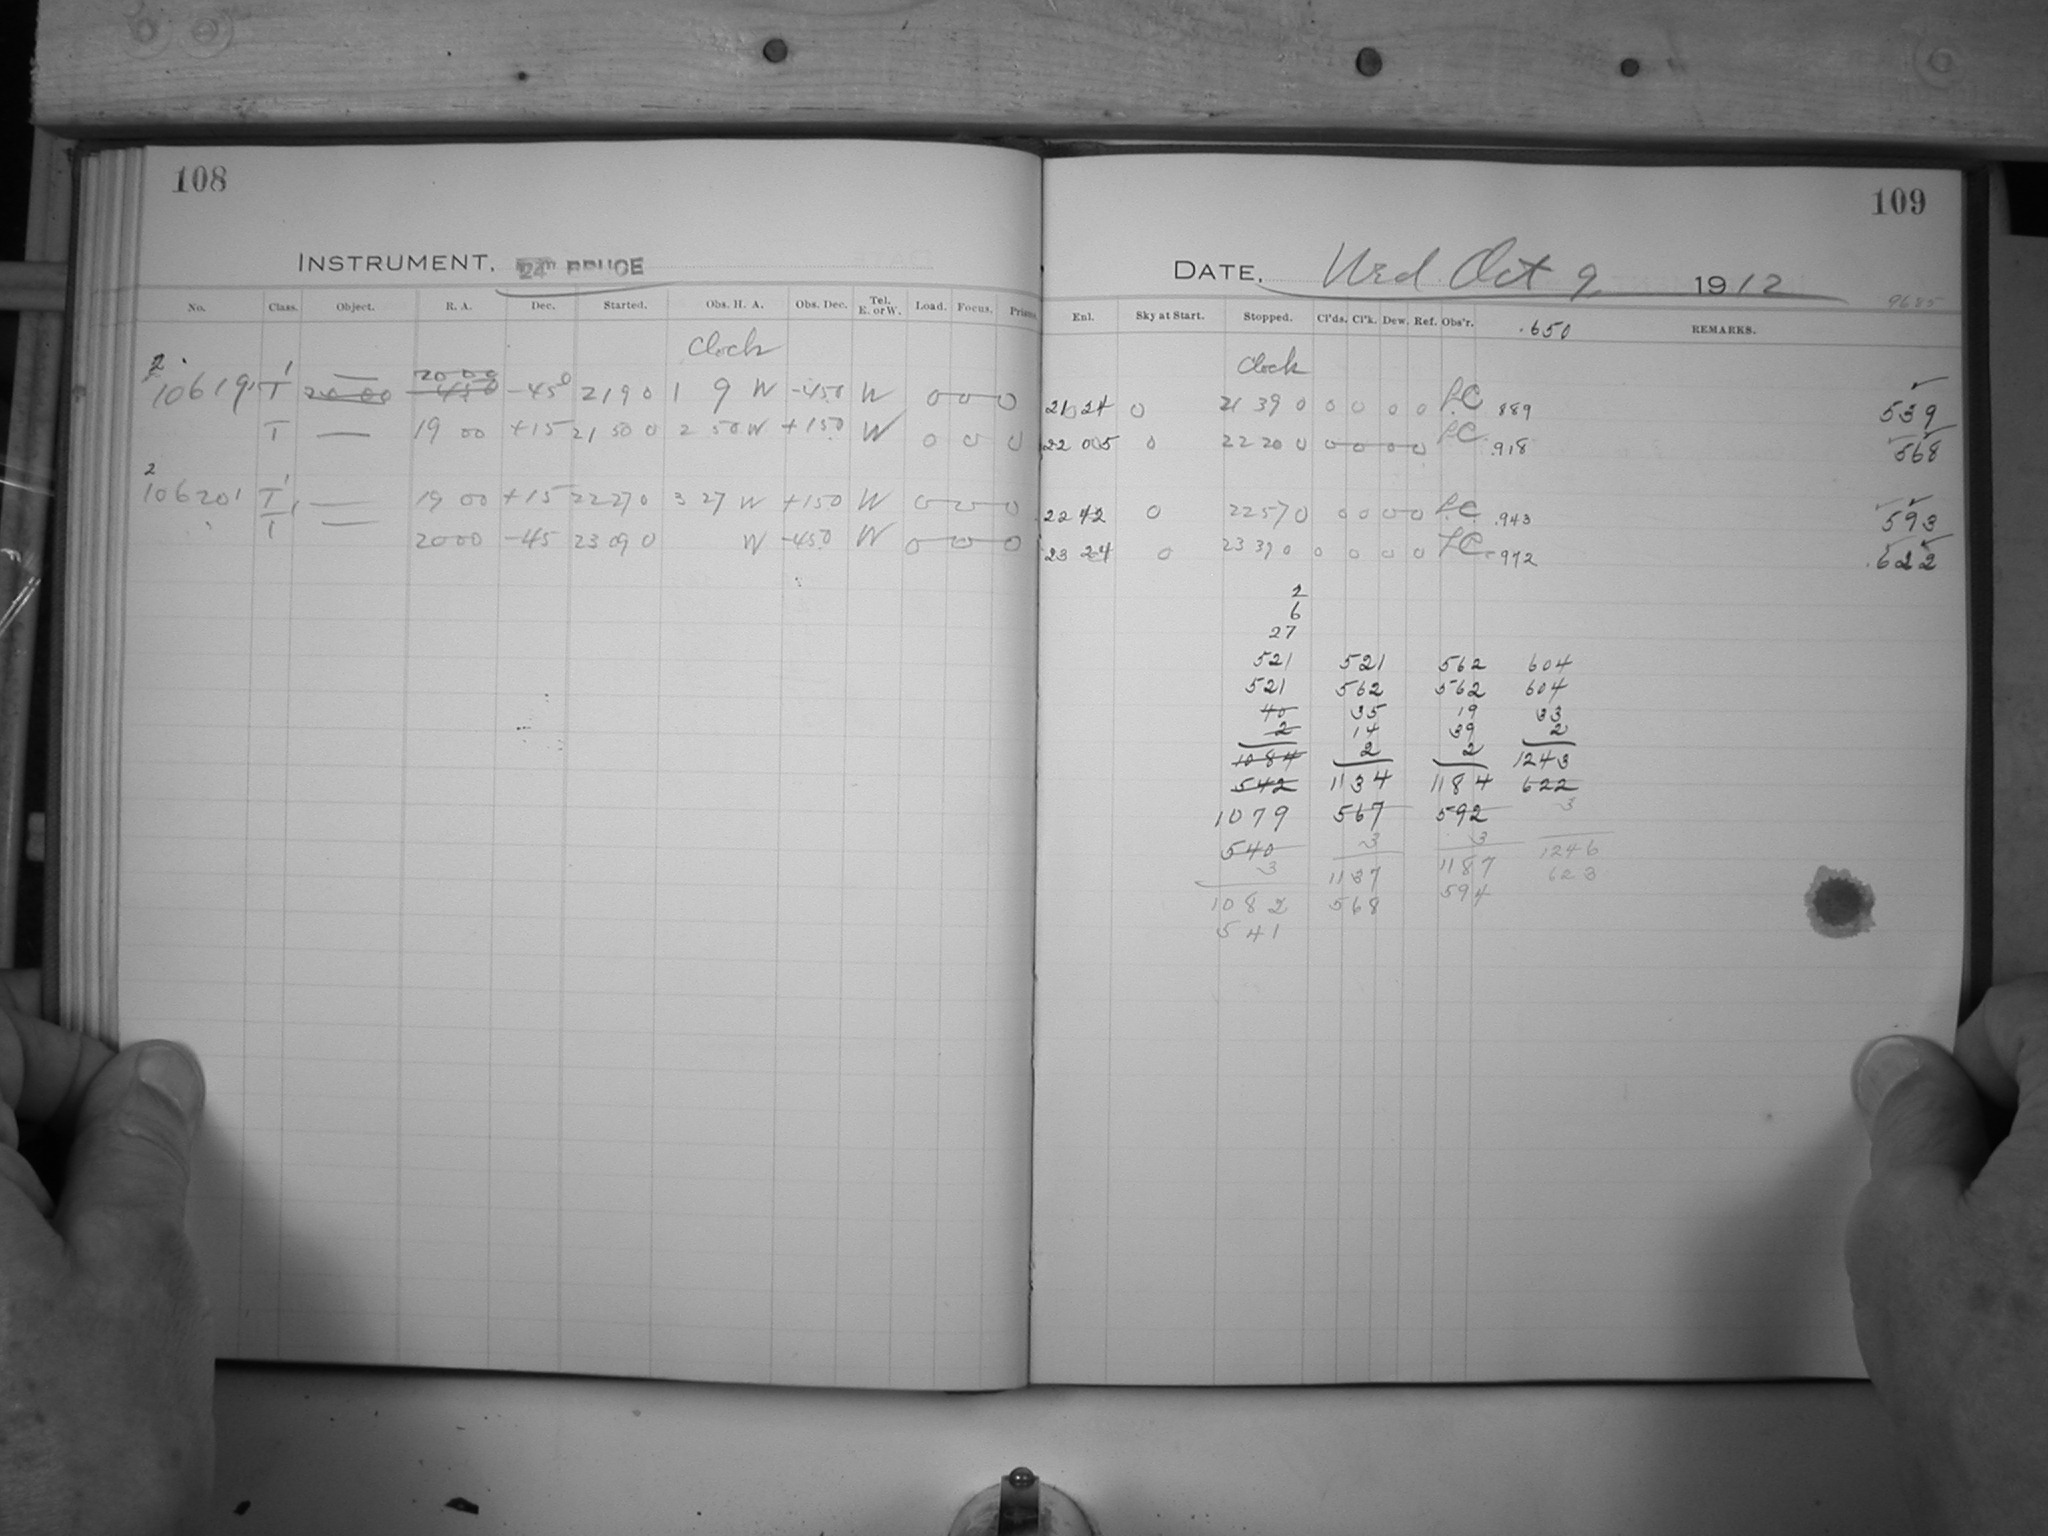 108
INSTRUMENT. 24" BRUCE
No. Class. Object. R. A. Dec. Started. Obs. H. A. Obs. Dec. Tel. E. or W. Load. Focus. Prisms.
Clock
2
10619 T — 2000 -45 0 21 9 0 1 9 W -45.0 W 0 0 0
T — 19 00 +15 21 50 0 2 50 W +15.0 W 0 0 0
2
10620 T — 19 00 +15 22 27 0 3 27 W +15.0 W 0 0 0
T — 2000 -45 23 09 0 W -45.0 W 0 0 0
109
DATE. Wed Oct 9, 1912
9685
Enl. Sky at Start. Stopped. Cl'ds. Cl'k. Dew. Ref. Obs'r. .650 REMARKS.
Clock
21 24 0 21 39 0 0 0 0 0 L.C. 889 539
22 005 0 22 20 0 0 0 0 0 L.C. .918 568
22 42 0 22 57 0 0 0 0 0 L.C. .943 593
23 24 0 23 39 0 0 0 0 0 L.C. .972 .622
2
6
27
521 521 562 604
521 562 562 604
40 35 19 33
2 14 39 2
1084 2 2 1243
542 1134 1184 622
1079 567 592 3
540 3 3 1246
3 1137 1187 623
1082 568 594
541